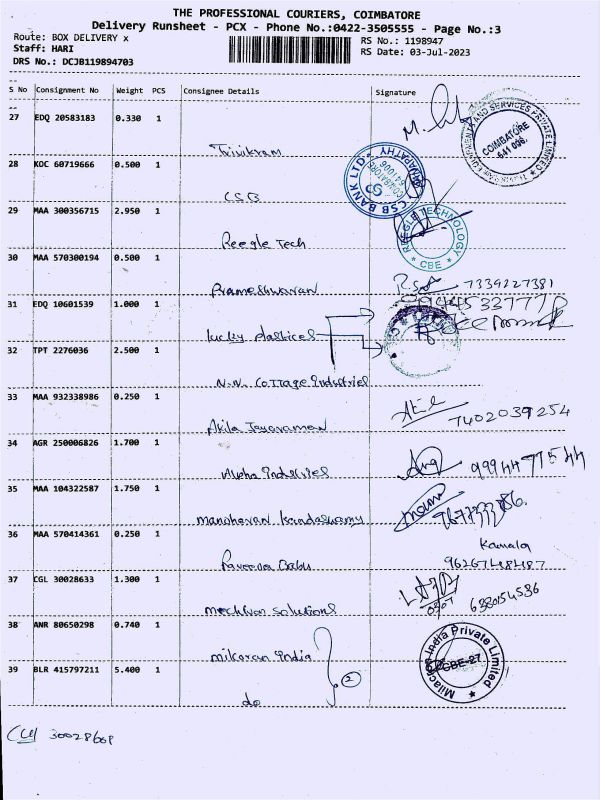 THE PROFESSIONAL COURIERS, COIMBATORE
Delivery Runsheet - PCX - Phone No.:0422-3505555 - Page No.:3
Route: BOX DELIVERY x
RS No.: 1198947
Staff: HARI
RS Date: 03-Jul-2023
DRS No.: DCJB119894703
S No Consignment No Weight PCS Consignee Details Signature
27 EDQ 20583183 0.330 1
Trivikram
COIMBATORE
641 036
28 KOC 60719666 0.500 1
CSB
CSB BANK LTD
GANAPATHY
COIMBATORE
641006
29 MAA 300356715 2.950 1
Reegle Tech
REEGLE TECHNOLOGY
CBE
30 MAA 570300194 0.500 1
Prameshwaran
7339227381
31 EDQ 10601539 1.000 1
lucky plastices
32 TPT 2276036 2.500 1
N.N. Cottage Industries
33 MAA 932338986 0.250 1
Akila Jayaraman
7402039254
34 AGR 250006826 1.700 1
Alpha industries
99944 77544
35 MAA 104322587 1.750 1
manoharan kandaswamy
36 MAA 570414361 0.250 1
Praveena Babu
Kamala
9626748487
37 CGL 30028633 1.300 1
mechvan solutions
6380154536
38 ANR 80650298 0.740 1
milacron india
39 BLR 415797211 5.400 1
do
2
Milacron India Private Limited
CBE-27
CGL 30028608